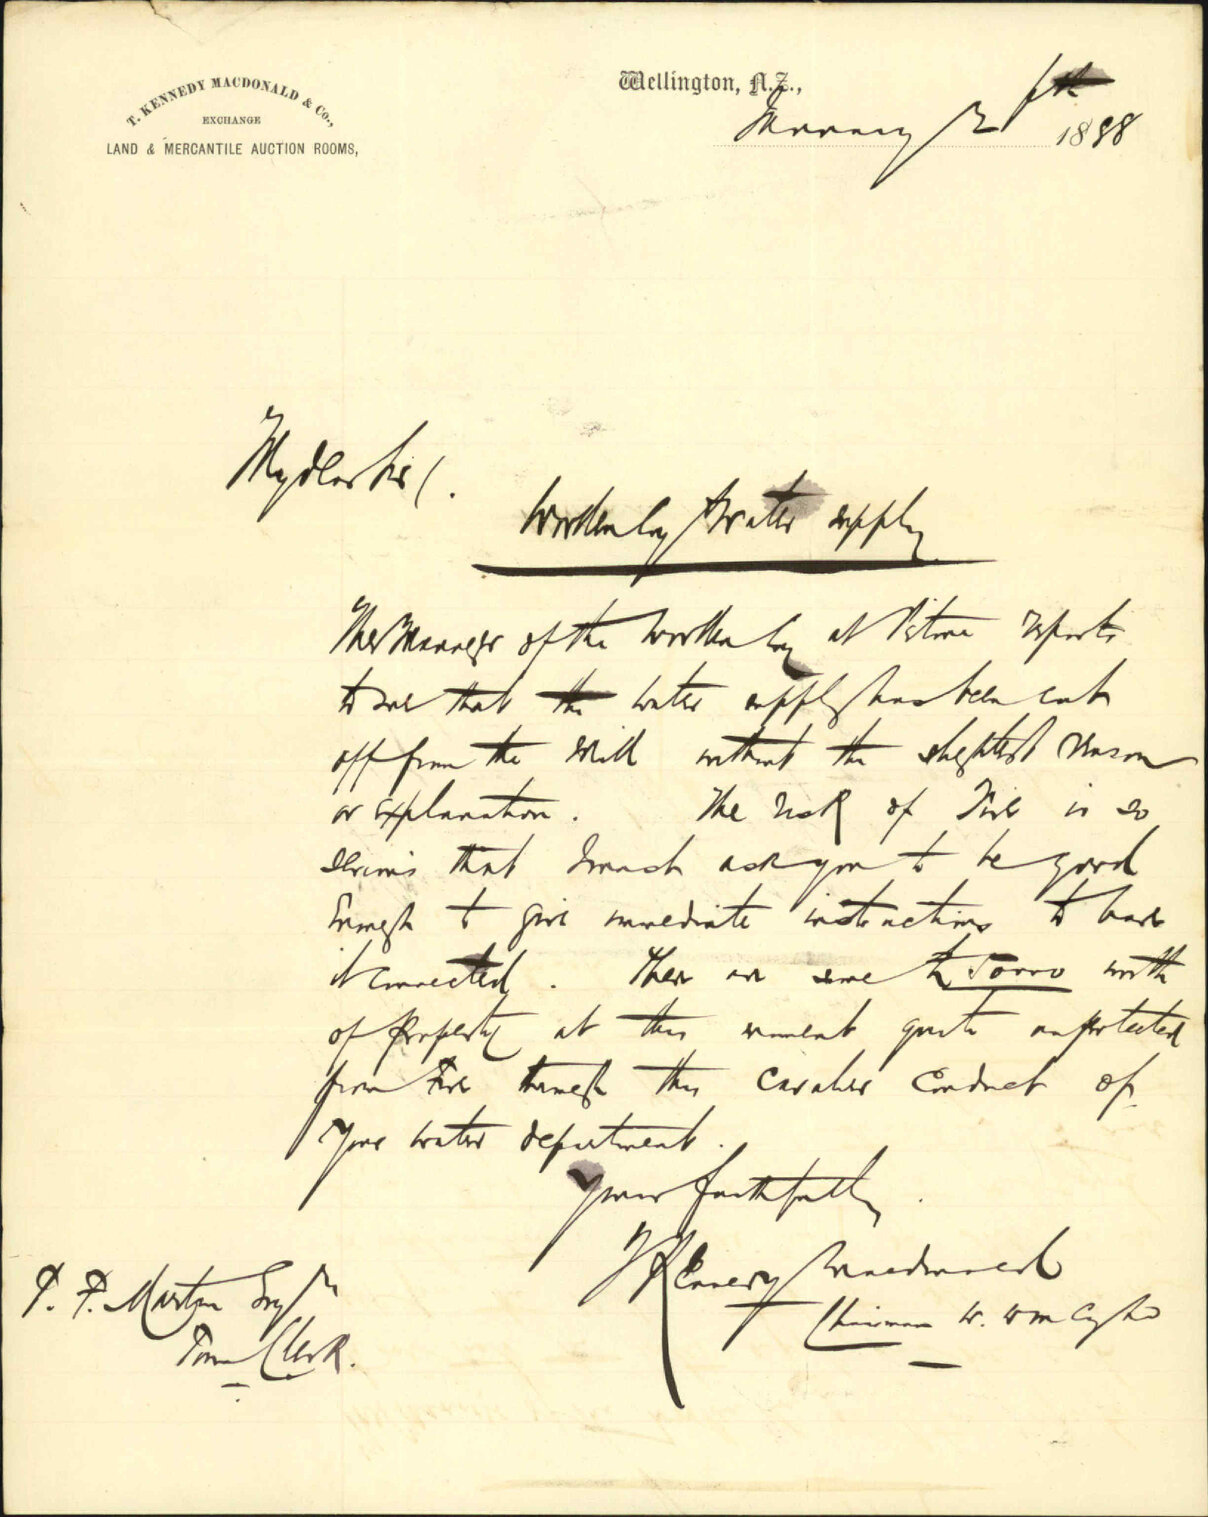 T. KENNEDY MACDONALD & Co.,
EXCHANGE
LAND & MERCANTILE AUCTION ROOMS,
Wellington, N.Z.,
January 1888
My dear Sir
Woollen Coy Water supply
The Manager of the Woollen Coy at Petone reports
to me that the water supply has been cut
off from the Mill without the slightest reason
or explanation. The risk of Fire is so
serious that I must ask you to be good
enough to give immediate instructions to have
it connected. There are some worth
of property at this moment quite unprotected
from Fire through this cavalier conduct of
your water department.
Yours faithfully
T Kennedy Macdonald
Chairman W. Wn Coy Ld
F. F. Martin Esqre
Town Clerk.